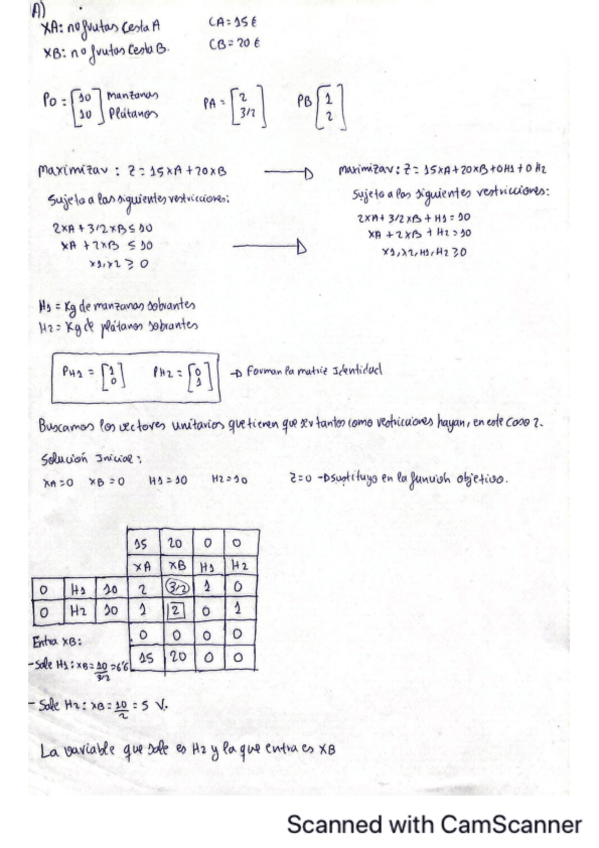 A)
XA: no frutas Cesta A CA = 15€
XB: no frutas Cesta B. CB = 20 €
P0 = [10 10] Manzanas Plátanos PA = [2 3/2] PB [1 2]
Maximizar : Z = 15XA + 20XB → Maximizar: Z = 15XA + 20XB + 0H1 + 0H2
Sujeto a las siguientes restricciones: Sujeto a las siguientes restricciones:
2XA + 3/2 XB ≤ 10 2XA + 3/2 XB + H1 = 10
XA + 2XB ≤ 10 → XA + 2XB + H2 = 10
X1, X2 ≥ 0 X1, X2, H1, H2 ≥ 0
H1 = Kg de manzanas sobrantes
H2 = Kg de plátanos sobrantes
PH1 = [1 0] PH2 = [0 1] → Forman la matriz Identidad
Buscamos los vectores unitarios que tienen que ser tantos como restricciones hayan, en este caso 2.
Solución Inicial:
XA = 0 XB = 0 H1 = 10 H2 = 10 Z = 0 → Sustituyo en la función objetivo.
15 20 0 0
XA XB H1 H2
0 H1 10 2 3/2 1 0
0 H2 10 1 2 0 1
0 0 0 0
Entra XB: 15 20 0 0
- Sale H1: XB = 10/3/2 = 6'6
- Sale H2: XB = 10/2 = 5 V.
La variable que sale es H2 y la que entra es XB
Scanned with CamScanner